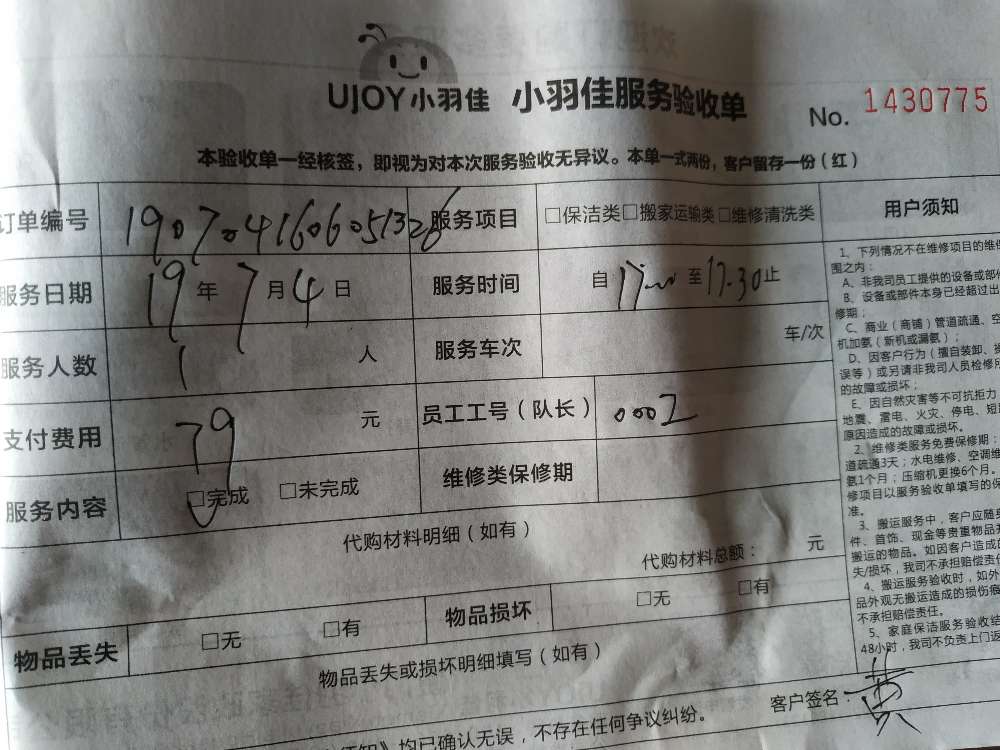 UJOY小羽佳 小羽佳服务验收单 No. 1430775
本验收单一经核签，即视为对本次服务验收无异议。本单一式两份，客户留存一份（红）
订单编号 1907041606051326 服务项目 □保洁类□搬家运输类□维修清洗类
服务日期 19年 7月4日 服务时间 自17:00至17:30止
服务人数 1 人 服务车次 车/次
支付费用 79 元 员工工号（队长） 0002
服务内容 □完成 □未完成 维修类保修期
代购材料明细（如有）
代购材料总额： 元
物品丢失 □无 □有 物品损坏 □无 □有
物品丢失或损坏明细填写（如有）
均已确认无误，不存在任何争议纠纷。 客户签名： 黄
用户须知
1、下列情况不在维修项目的维
围之内：
A、非我司员工提供的设备或部件
B、设备或部件本身已经超过出
修期；
C、商业（商铺）管道疏通、空
机加氨（新机或漏氨）；
D、因客户行为（擅自装卸、操
误等）或另请非我司人员检修所
的故障或损坏；
E、因自然灾害等不可抗拒力
地震、雷电、火灾、停电、短
原因造成的故障或损坏。
2、维修类服务免费保修期：
道疏通3天；水电维修、空调维
氨1个月；压缩机更换6个月。
修项目以服务验收单填写的保
准。
3、搬运服务中，客户应随身
件、首饰、现金等贵重物品
搬运的物品。如因客户造成的
失/损坏，我司不承担赔偿责任
4、搬运服务验收时，如外
品外观无搬运造成的损伤痕
不承担赔偿责任。
5、家庭保洁服务验收结
48小时，我司不负责上门返